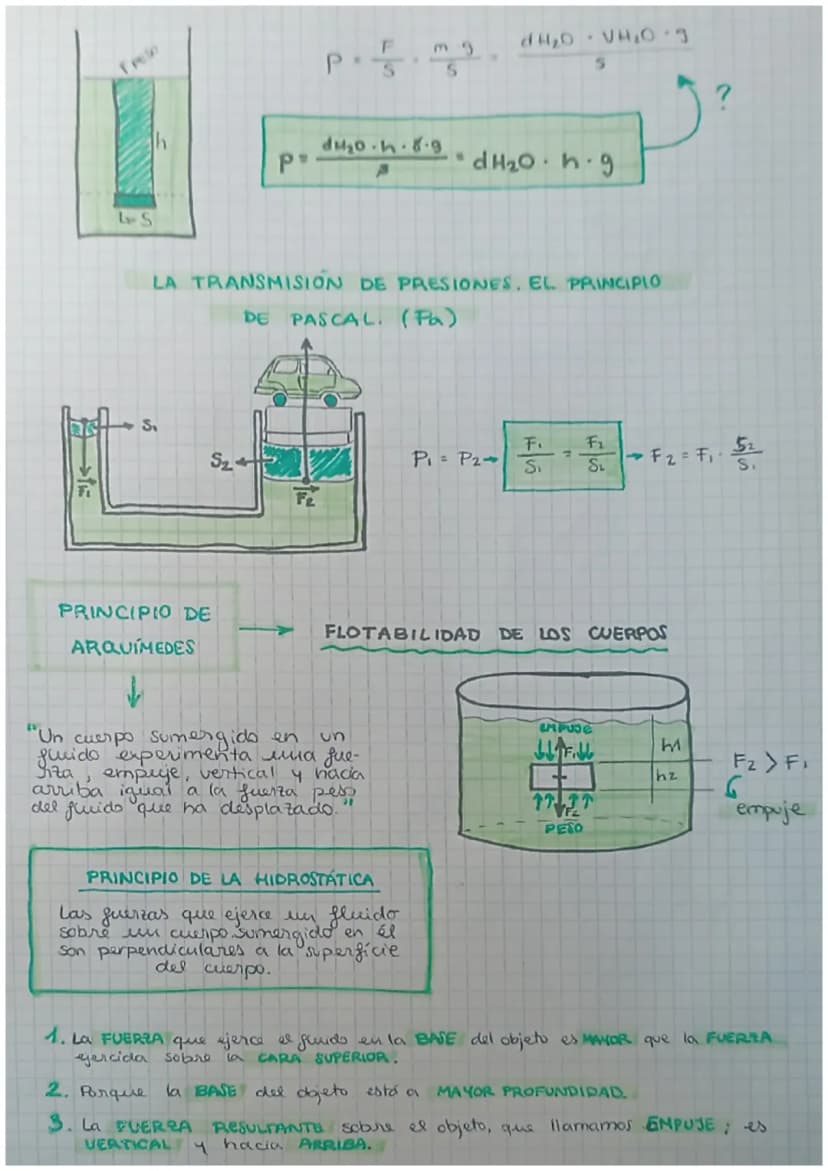 Peso
h
S
P = F/S = m·g/S = dH₂O · VH₂O · g / S
?
P = dH₂O · h · S · g / S = dH₂O · h · g
LA TRANSMISIÓN DE PRESIONES. EL PRINCIPIO
DE PASCAL. (Pa)
S₁
S₂
F₁
F₂
P₁ = P₂ → F₁/S₁ = F₂/S₂ → F₂ = F₁ · S₂/S₁
PRINCIPIO DE
ARQUÍMEDES
→ FLOTABILIDAD DE LOS CUERPOS
"Un cuerpo sumergido en un
fluido experimenta una fue-
rza, empuje, vertical y hacia
arriba igual a la fuerza peso
del fluido que ha desplazado."
EMPUJE
F₁
h1
h2
F₂
PESO
F₂ > F₁
empuje
PRINCIPIO DE LA HIDROSTÁTICA
Las fuerzas que ejerce un fluido
sobre un cuerpo sumergido en él
son perpendiculares a la superfície
del cuerpo.
1. La FUERZA que ejerce el fluido en la BASE del objeto es MAYOR que la FUERZA
ejercida sobre la CARA SUPERIOR.
2. Porque la BASE del objeto está a MAYOR PROFUNDIDAD.
3. La FUERZA RESULTANTE sobre el objeto, que llamamos EMPUJE; es
VERTICAL y hacia ARRIBA.